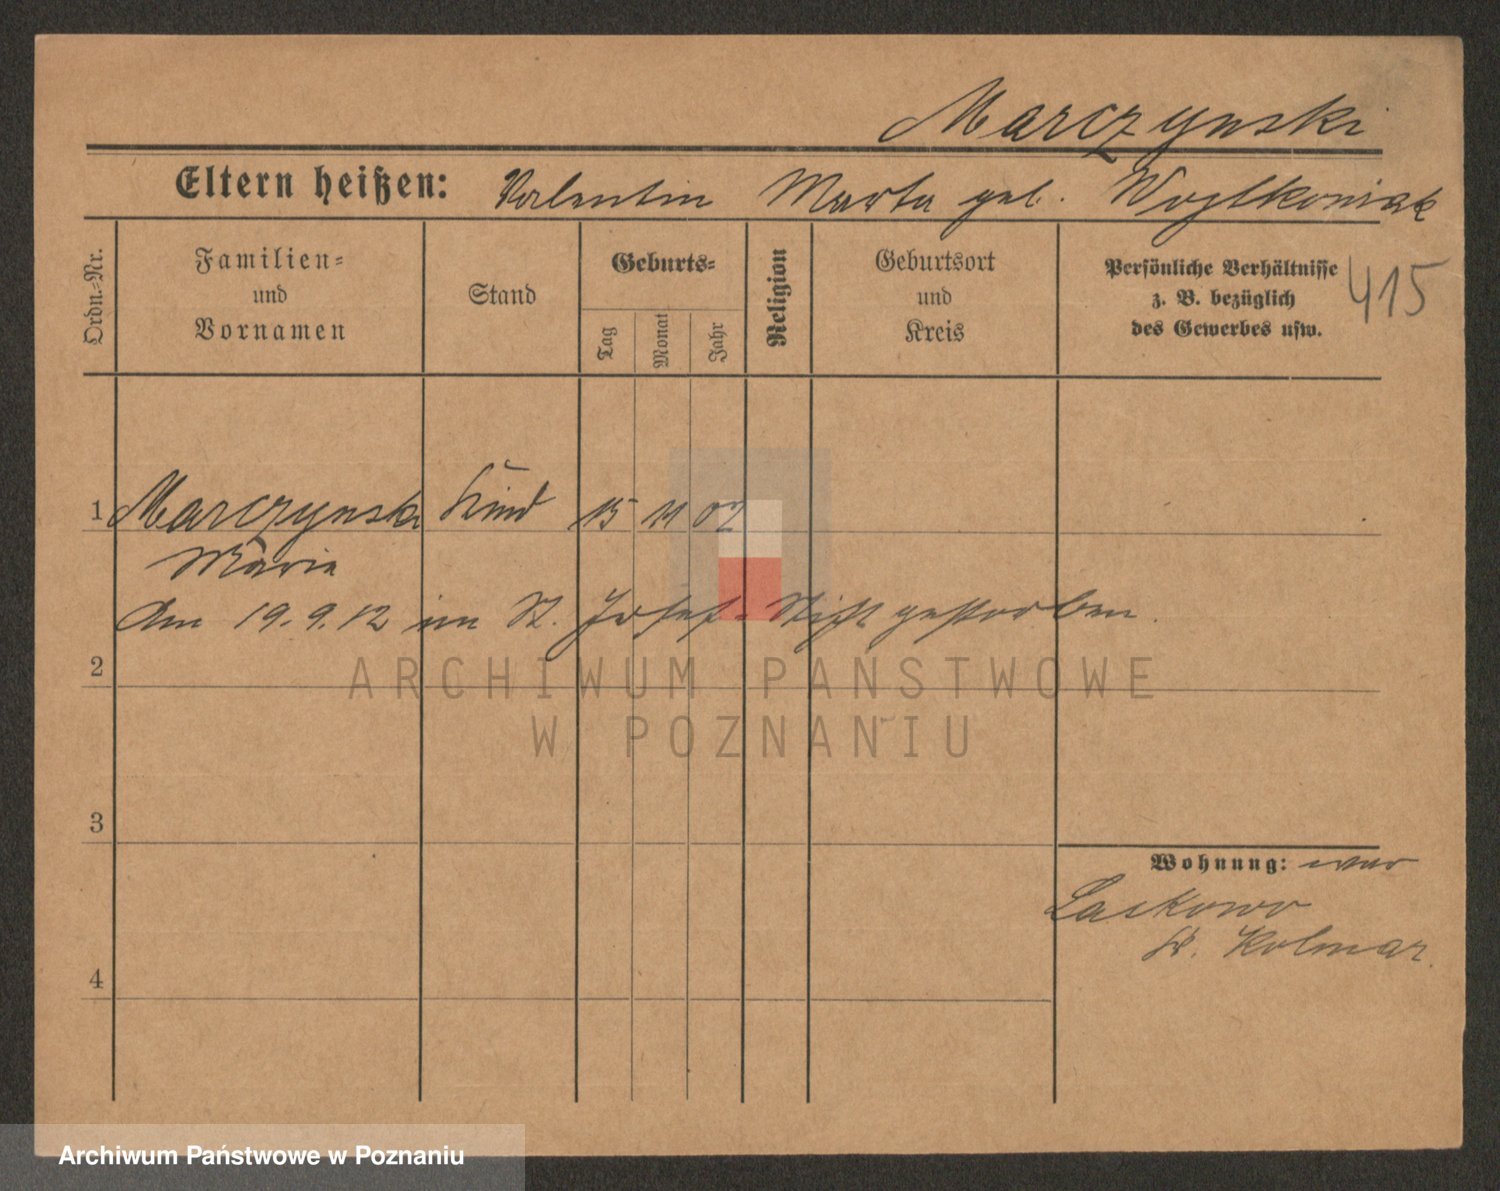 Marczynski
Eltern heißen: Valentin Marta geb. Wojtkoniak
Ordn.-Nr.
Familien-
und
Vornamen
Stand
Geburts-
Tag
Monat
Jahr
Religion
Geburtsort
und
Kreis
Persönliche Verhältnisse
z. B. bezüglich
des Gewerbes usw.
415
1 Marczynski Kind 15 11 07
Maria
Am 19.9.12 im St. Josef-Stift gestorben.
2
ARCHIWUM PAŃSTWOWE
W POZNANIU
3
Wohnung: war
Laskowo
Kr. Kolmar.
4
Archiwum Państwowe w Poznaniu